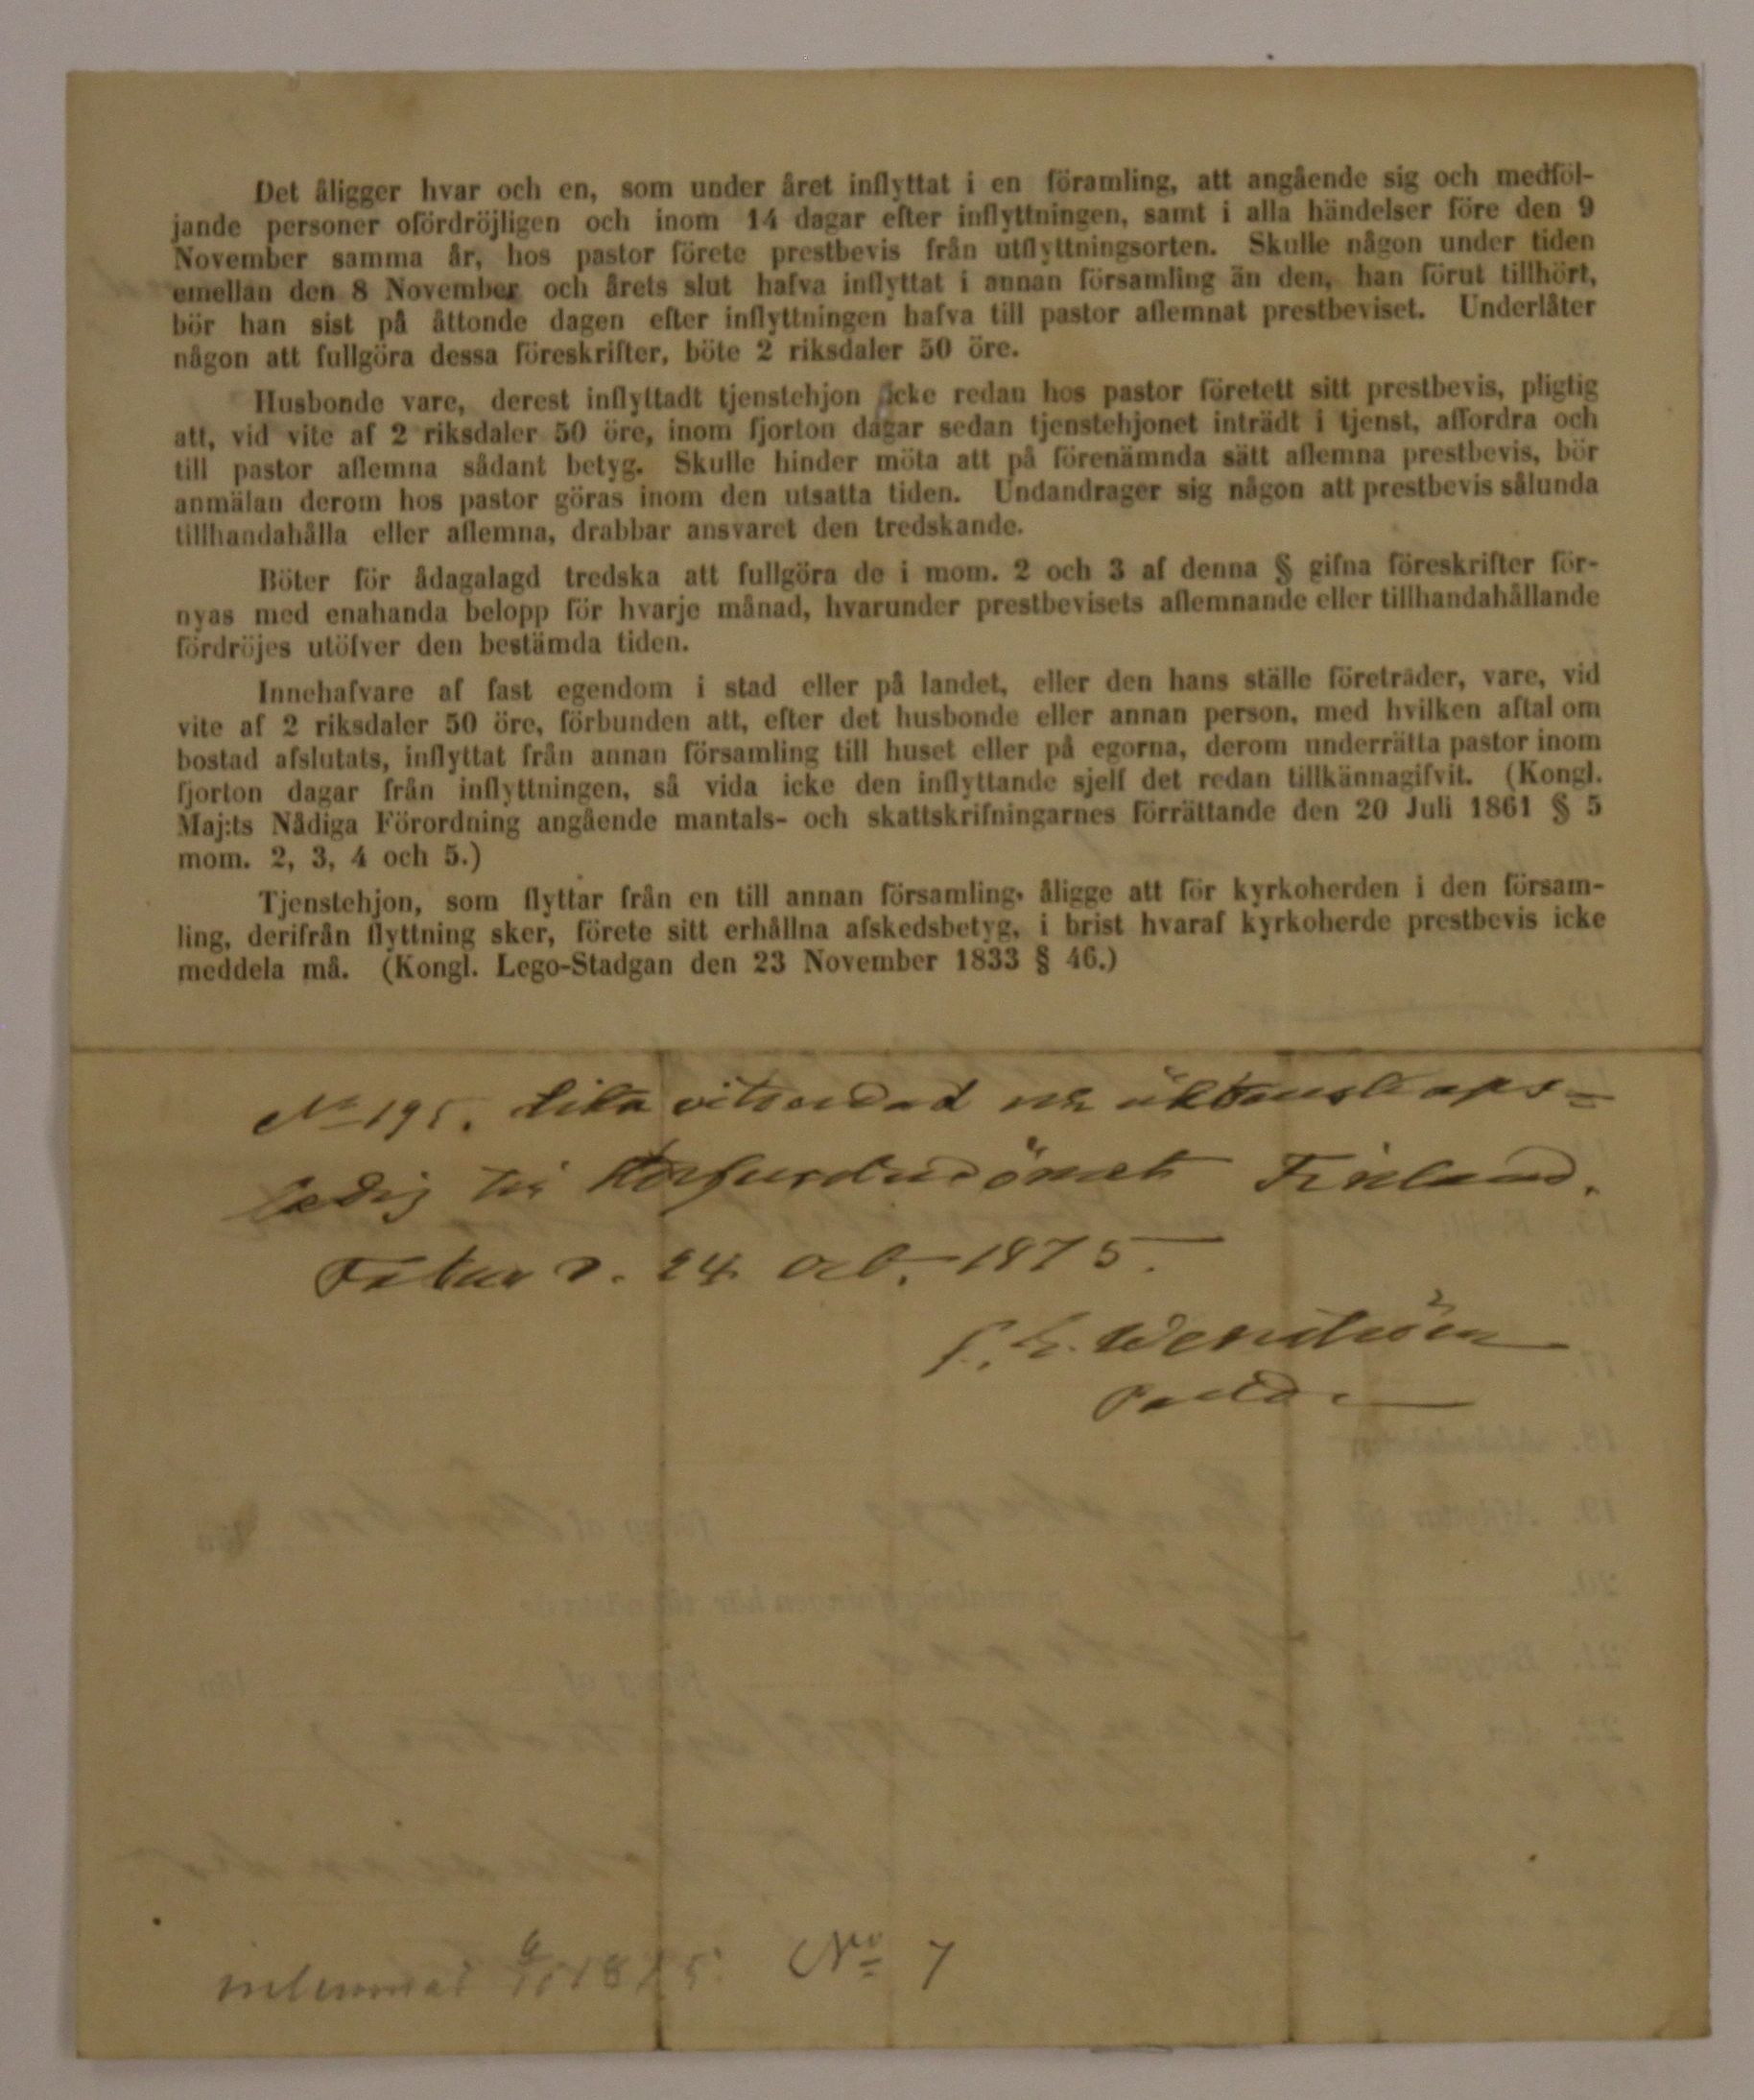 Det åligger hvar och en, som under året inflyttat i en föramling, att angående sig och medföl-
jande personer ofördröjligen och inom 14 dagar efter inflyttningen, samt i alla händelser före den 9
November samma år, hos pastor förete prestbevis från utflyttningsorten. Skulle någon under tiden
emellan den 8 November och årets slut hafva inflyttat i annan församling än den, han förut tillhört,
bör han sist på åttonde dagen efter inflyttningen hafva till pastor aflemnat prestbeviset. Underlåter
någon att fullgöra dessa föreskrifter, böte 2 riksdaler 50 öre.
Husbonde vare, derest inflyttadt tjenstehjon icke redan hos pastor företett sitt prestbevis, pligtig
att, vid vite af 2 riksdaler 50 öre, inom fjorton dagar sedan tjenstehjonet inträdt i tjenst, affordra och
till pastor aflemna sådant betyg. Skulle hinder möta att på förenämnda sätt aflemna prestbevis, bör
anmälan derom hos pastor göras inom den utsatta tiden. Undandrager sig någon att prestbevis sålunda
tillhandahålla eller aflemna, drabbar ansvaret den tredskande.
Böter för ådagalagd tredska att fullgöra de i mom. 2 och 3 af denna § gifna föreskrifter för-
nyas med enahanda belopp för hvarje månad, hvarunder prestbevisets aflemnande eller tillhandahållande
fördröjes utöfver den bestämda tiden.
Innehafvare af fast egendom i stad eller på landet, eller den hans ställe företräder, vare, vid
vite af 2 riksdaler 50 öre, förbunden att, efter det husbonde eller annan person, med hvilken aftal om
bostad afslutats, inflyttat från annan församling till huset eller på egorna, derom underrätta pastor inom
fjorton dagar från inflyttningen, så vida icke den inflyttande sjelf det redan tillkännagifvit. (Kongl.
Maj:ts Nådiga Förordning angående mantals- och skattskrifningarnes förrättande den 20 Juli 1861 § 5
mom. 2, 3, 4 och 5.)
Tjenstehjon, som flyttar från en till annan församling, åligge att för kyrkoherden i den försam-
ling, derifrån flyttning sker, förete sitt erhållna afskedsbetyg, i brist hvaraf kyrkoherde prestbevis icke
meddela må. (Kongl. Lego-Stadgan den 23 November 1833 § 46.)
No 195. Lika vitsordad och äktenskaps-
ledig till Storfurstendömet Finland.
d. 24 Oct. 1875.
Wenström
Pastor
inlemnad 1875. No 7